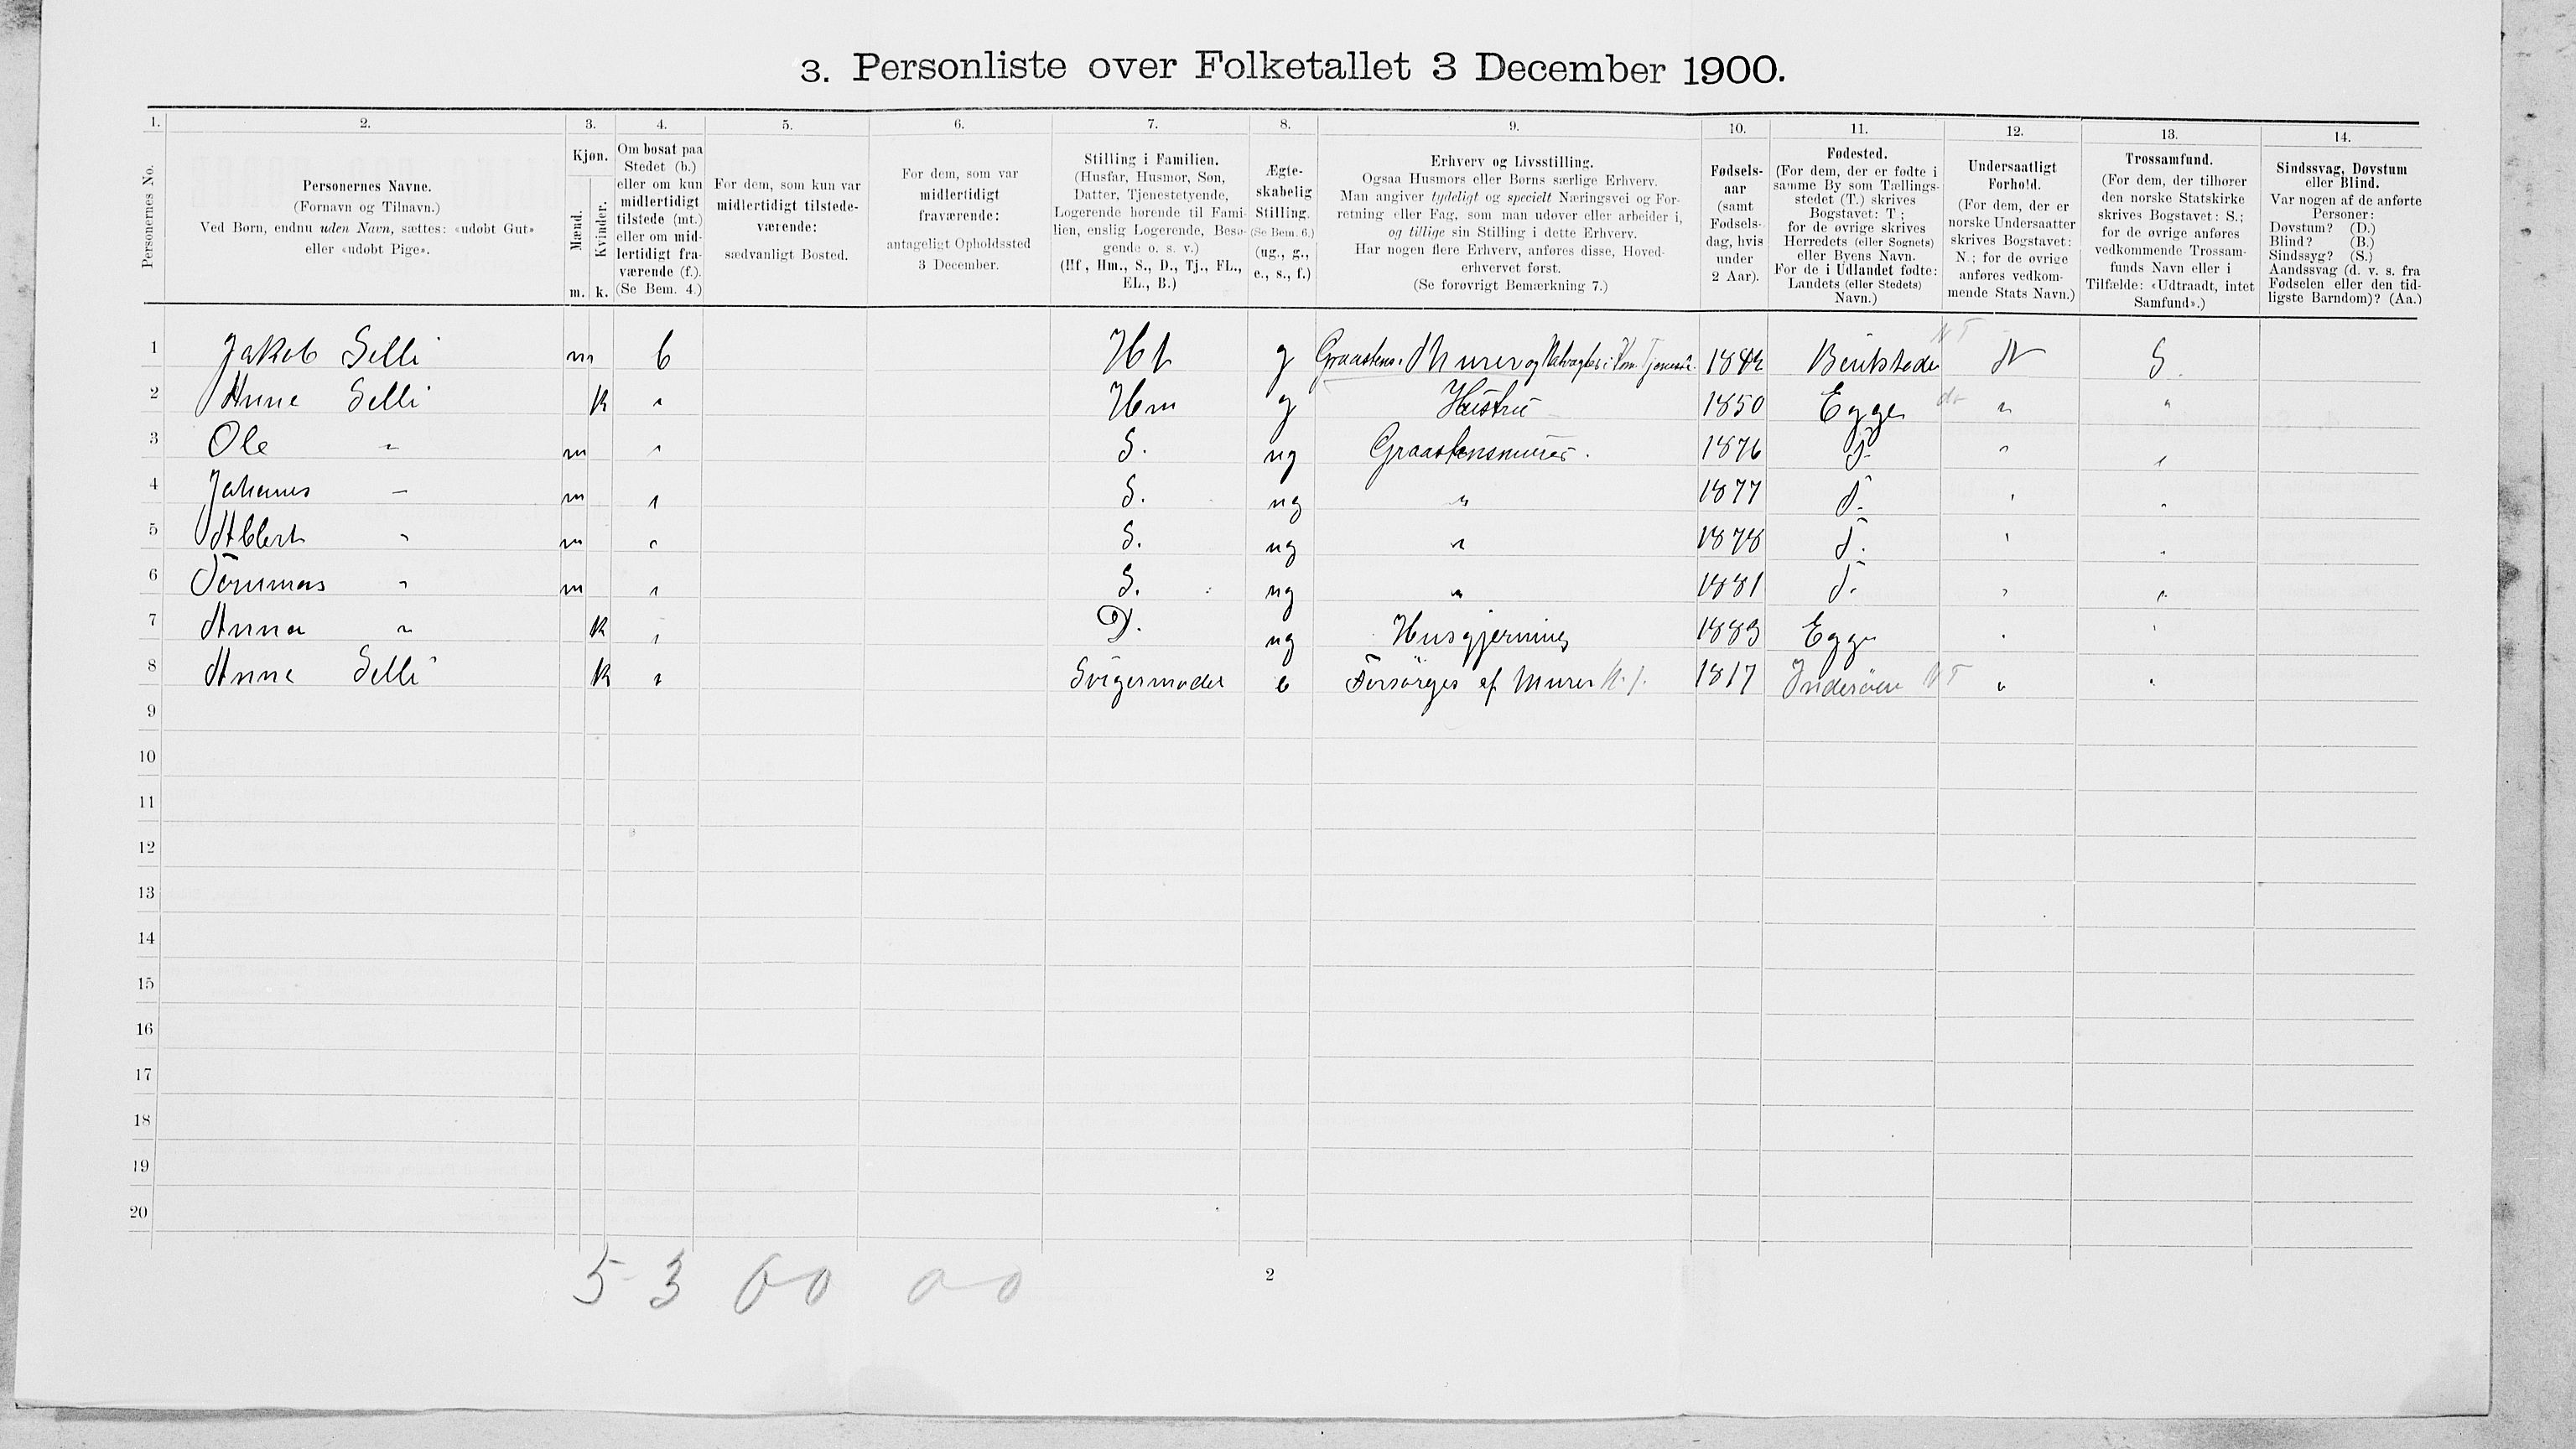 3. Personliste over Folketallet 3 December 1900.
1. 2. 3. 4. 5. 6. 7. 8. 9. 10. 11. 12. 13. 14.
Personernes No.
Personernes Navne.
(Fornavn og Tilnavn.)
Ved Børn, endnu uden Navn, sættes: «udøbt Gut»
eller «udøbt Pige».
Kjøn.
Mænd.
Kvinder.
m. k.
Om bosat paa
Stedet (b.)
eller om kun
midlertidigt
tilstede (mt.)
eller om mid-
lertidigt fra-
værende (f.).
(Se Bem. 4.)
For dem, som kun var
midlertidigt tilstede-
værende:
sædvanligt Bosted.
For dem, som var
midlertidigt
fraværende:
antageligt Opholdssted
3 December.
Stilling i Familien.
(Husfar, Husmor, Søn,
Datter, Tjenestetyende,
Logerende hørende til Fami-
lien, enslig Logerende, Besø-
gende o. s. v.)
(Hf., Hm., S., D., Tj., FL.,
EL., B.)
Ægte-
skabelig
Stilling.
(Se Bem. 6.)
(ug., g.,
e., s., f.)
Erhverv og Livsstilling.
Ogsaa Husmors eller Børns særlige Erhverv.
Man angiver tydeligt og specielt Næringsvei og For-
retning eller Fag, som man udøver eller arbeider i,
og tillige sin Stilling i dette Erhverv.
Har nogen flere Erhverv, anføres disse, Hoved-
erhvervet først.
(Se forøvrigt Bemærkning 7.)
Fødsels-
aar
(samt
Fødsels-
dag, hvis
under
2 Aar).
Fødested.
(For dem, der er fødte i
samme By som Tællings-
stedet (T.) skrives
Bogstavet: T;
for de øvrige skrives
Herredets (eller Sognets)
eller Byens Navn.
For de i Udlandet fødte:
Landets (eller Stedets)
Navn.)
Undersaatligt
Forhold.
(For dem, der er
norske Undersaatter
skrives Bogstavet:
N.; for de øvrige
anføres vedkom-
mende Stats Navn.)
Trossamfund.
(For dem, der tilhører
den norske Statskirke
skrives Bogstavet: S.;
for de øvrige anføres
vedkommende Trossam-
funds Navn eller i
Tilfælde: «Udtraadt, intet
Samfund».)
Sindssvag, Døvstum
eller Blind.
Var nogen af de anførte
Personer:
Døvstum? (D.)
Blind? (B.)
Sindssyg? (S.)
Aandssvag (d. v. s. fra
Fødselen eller den tid-
ligste Barndom)? (Aa.)
1 Jakob Selli m b Hf g Graastens Murer og i Kom. Tjeneste N T N S.
2 Anne Selli k " Hm g Hustru 1850 Egge do " "
3 Ole " m " S. ug Graastensmurer. 1876 T. " "
4 Johannes " m " S. ug " 1877 T. " "
5 Albert " m " S. ug " 1878 T. " "
6 Tommas " m " S. ug " 1881 T. " "
7 Anna " k " D. ug Husgjerning 1883 Egge " "
8 Anne Selli k " Svigermoder e Forsørges af Murer H.f. 1817 Inderöen N T " "
9
10
11
12
13
14
15
16
17
18
19
20
5 3 0 0 0 0
2